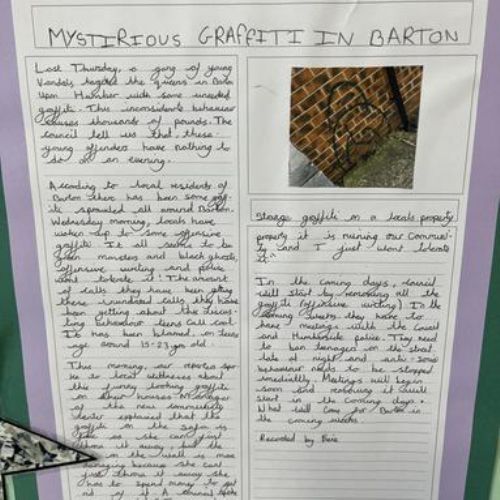 MYSTIRIOUS GRAFFITI IN BARTON
Last Thursday, a gang of young
Vandals the in Barton
Upon Humber with some unneeded
graffiti. This inconsiderate behaviour
causes thousands of pounds. The
council tell us that, these
young offenders have nothing to
do of an evening.
According to local residents of
Barton there has been some graff-
iti sprouded all around Barton.
Wednesday morning, locals have
woken up to some offensive
graffiti. It all seems to be
green monsters and black ghosts,
offensive writing and police
wont tolerate it. The amount
of calls they have been getting
these calls they have
been getting about this
behaviour teens call cool.
It has been blamed on teens
age around 15-23 yrs old.
This morning, our reporters spo
ke to local witnesses about
this funny looking graffiti
on their houses. Manager
of the new community
explained that the
graffiti on the sofa is
fine as she can just
throw it away, but the
on the wall is more
damaging because she cant
just throw it away she
has to spend money to get
rid of it. A council
Strange graffiti on a locals property
property it is ruining our Communi-
ty and I just wont tolerate
it."
In the coming days, council
will start by removing all the
graffiti (offensive writing). In the
coming weeks they have to
have meetings with the council
and Humberside police. They need
to ban teenagers on the street
late at night and anti-
behaviour needs to be stopped
imediatly. Meetings will begin
soon and removing it will
start in the coming days.
What will come for Barton in
the coming weeks.
Recorded by